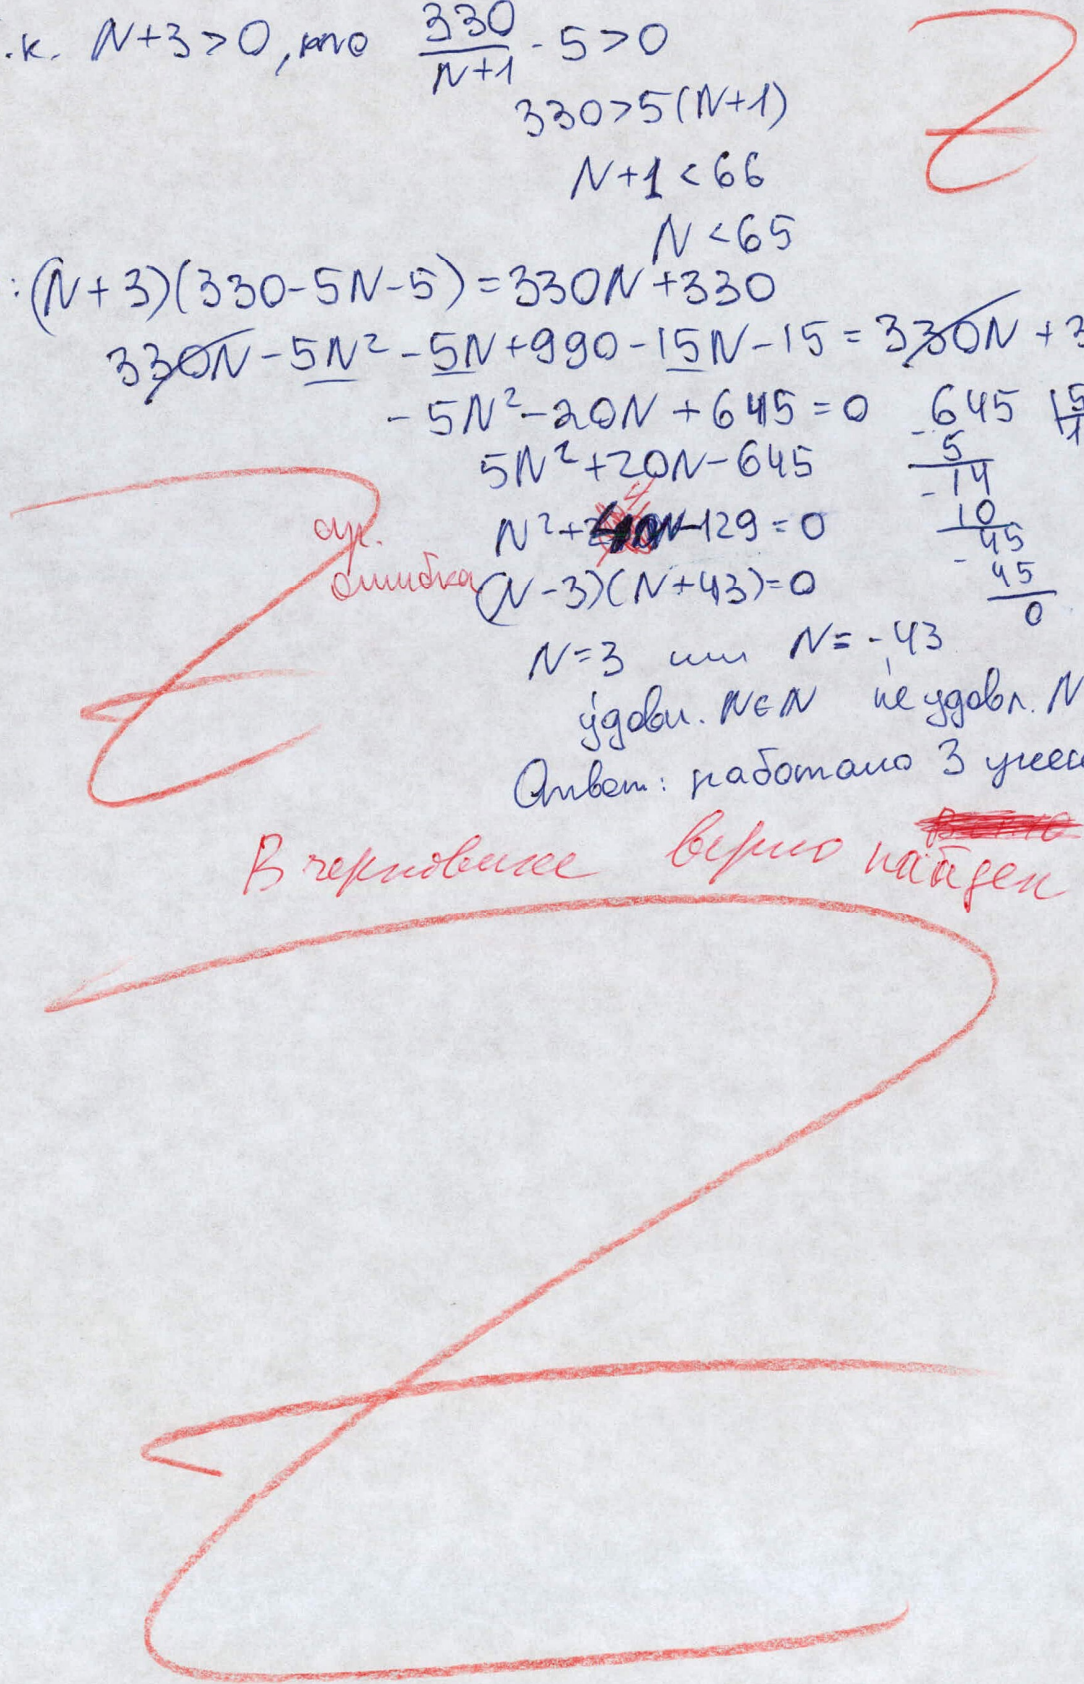 .к. N+3>0, то 330/(N+1) - 5>0
330>5(N+1)
N+1<66
N<65
:(N+3)(330-5N-5)=330N+330
330N-5N²-5N+990-15N-15=330N+3
-5N²-20N+645=0
5N²+20N-645
N²+4N-129=0
(N-3)(N+43)=0
N=3 или N=-43
удовл. N∈N не удовл. N
Ответ: работало 3
645 |5
- 5 1
-14
10
45
- 45
0
ошибка
В черновике верно найден